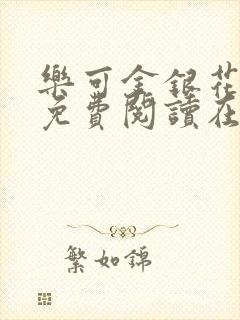 樂可金銀花
免費閱讀在
繁如錦